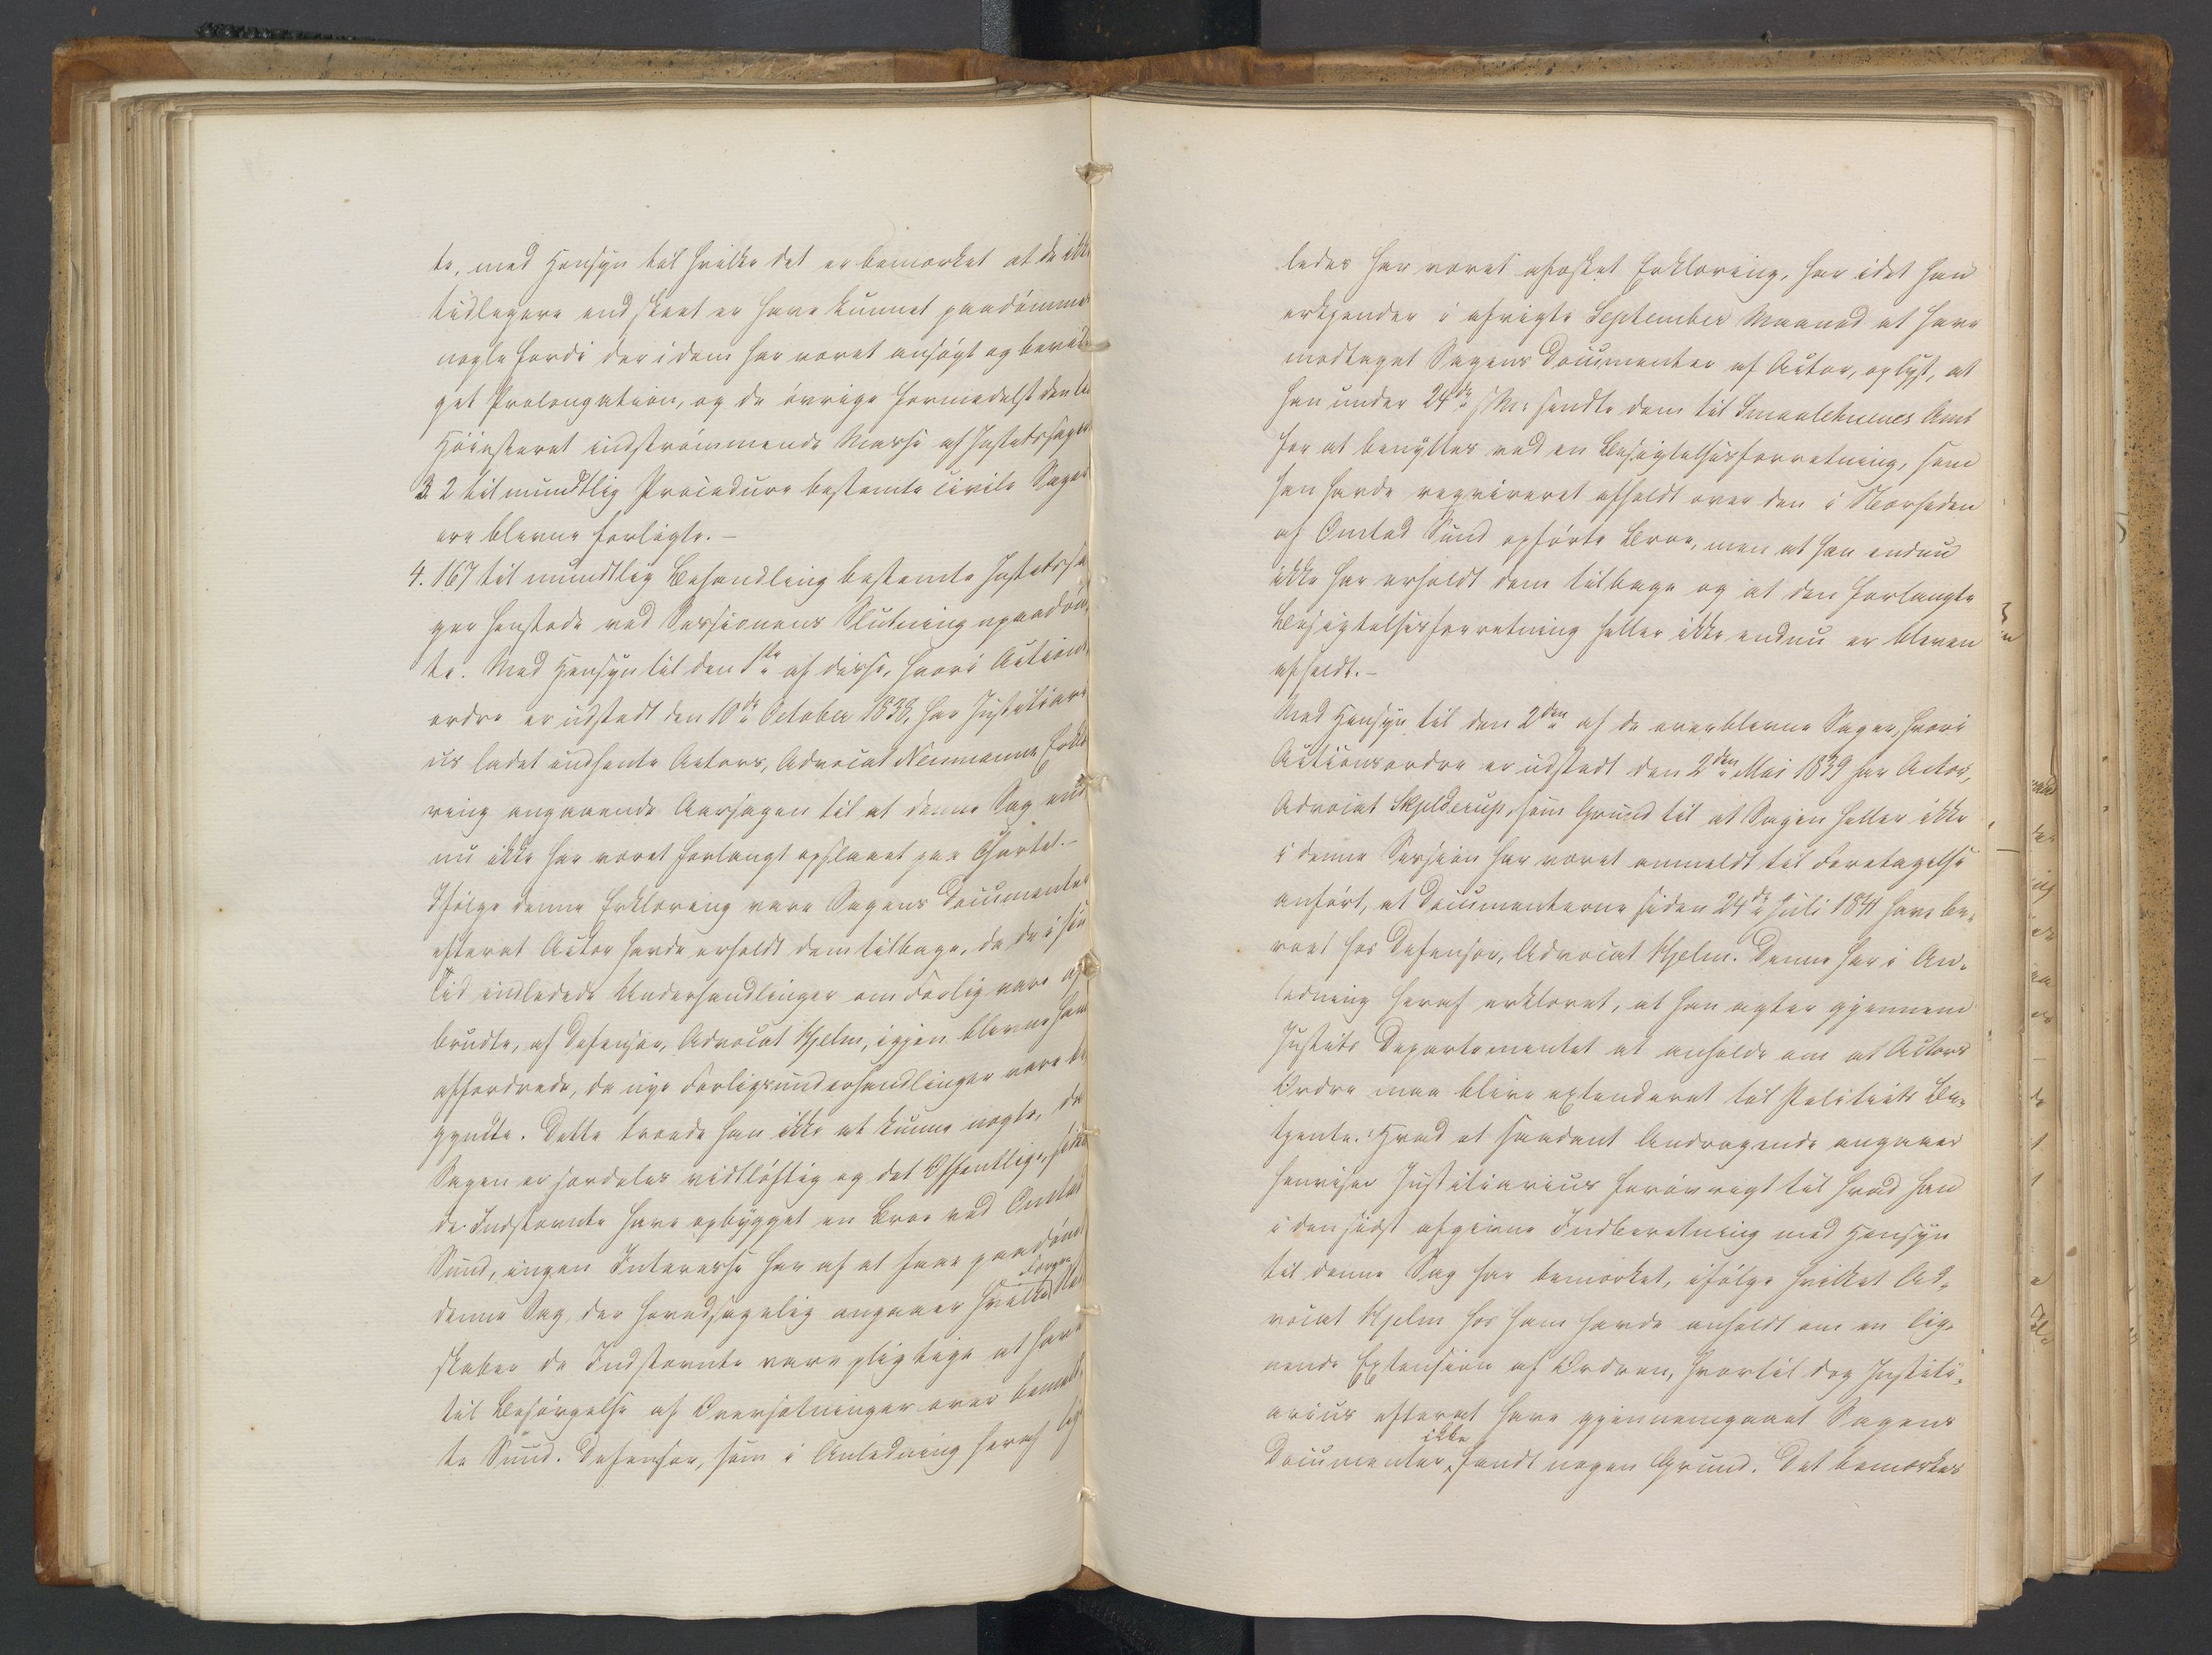 te, med Hensyn til hvilke det er bemærket at de ikke
tidligere end skeet er have kunnet paadømmes
nogle fordi der i dem har været ansøgt og bevil-
get Prolongation, og de øvrige formedelst den til
Høiesteret indstrømmende Masse af Justitssager.
3. 2 til mundtlig Procedure bestemte civile Sager
ere blevne forligte. –
4. 167 til mundtlig Behandling bestemte Justitssa-
ger henstode ved Sessionens Slutning upaadøm-
te. Med Hensyn til den 1ste af disse, hvori Actions-
ordre er udstedt den 10de October 1838, har Justitiari-
us ladet indhente Actors, Advocat Neumanns Erklæ-
ring angaaende Aarsagen til at denne Sag end-
nu ikke har været forlangt opslaaet paa Chartet. –
Ifølge denne Erklæring vare Sagens Documenter
efterat Actor havde erholdt dem tilbage, da de i sin
Tid indledede Underhandlinger om Forlig vare af-
brudte, af Defensor, Advocat Hjelm, igjen blevne ham
affordrede, da nye Forligsunderhandlinger vare be-
gyndte. Dette troede han ikke at kunne negte, da
Sagen er særdeles vidtløftig og det Offentlige,
de Indstevnte have opbygget en Broe ved Omtad
Sund, ingen Interesse har af at faae paadømt
denne Sag, der hovedsagelig angaaer hvilke Færge
skaber de Indstevnte vare pligtige at have
til Besørgelse af Oversætninger over bemeld-
te Sund. Defensor, som i Anledning heraf lige-
ledes har været afæsket Erklæring, har idet han
erkjender i afvigte September Maaned at have
modtaget Sagens Documenter af Actor, oplyst, at
han under 24de s. M. sendte dem til Smaalehnenes Amt
for at benyttes ved en Besigtelsesforretning, som
han havde reqvireret afholdt over den i Nærheden
af Omtad Sund opførte Broe, men at han endnu
ikke har erholdt dem tilbage og at den forlangte
Besigtelsesforretning heller ikke endnu er bleven
afholdt. –
Med Hensyn til den 2den af de overblevne Sager, hvori
Actionsordre er udstedt den 2den Mai 1839 har Actor,
Advocat Skjelderup, som Grund til at Sagen heller ikke
i denne Session har været anmeldt til Foretagelse
anført, at Documenterne siden 24de Juli 1841 have be-
roet hos Defensor, Advocat Hjelm. Denne har i An-
ledning heraf erklæret, at han agter gjennem
Justits Departementet at anholde om at Actors
Ordre maa blive extenderet til Politiets Be-
tjente. Hvad et saadant Andragende angaaer
henviser Justitiarius forøvrigt til hvad han
i den sidst afgivne Indberetning med Hensyn
til denne Sag har bemærket, ifølge hvilket Ad-
vocat Hjelm hos ham havde anholdt om en lig-
nende Extension af Ordren, hvortil dog Justiti-
arius efterat have gjennemgaaet Sagens
Documenter ikke fandt nogen Grund. Det bemærkes